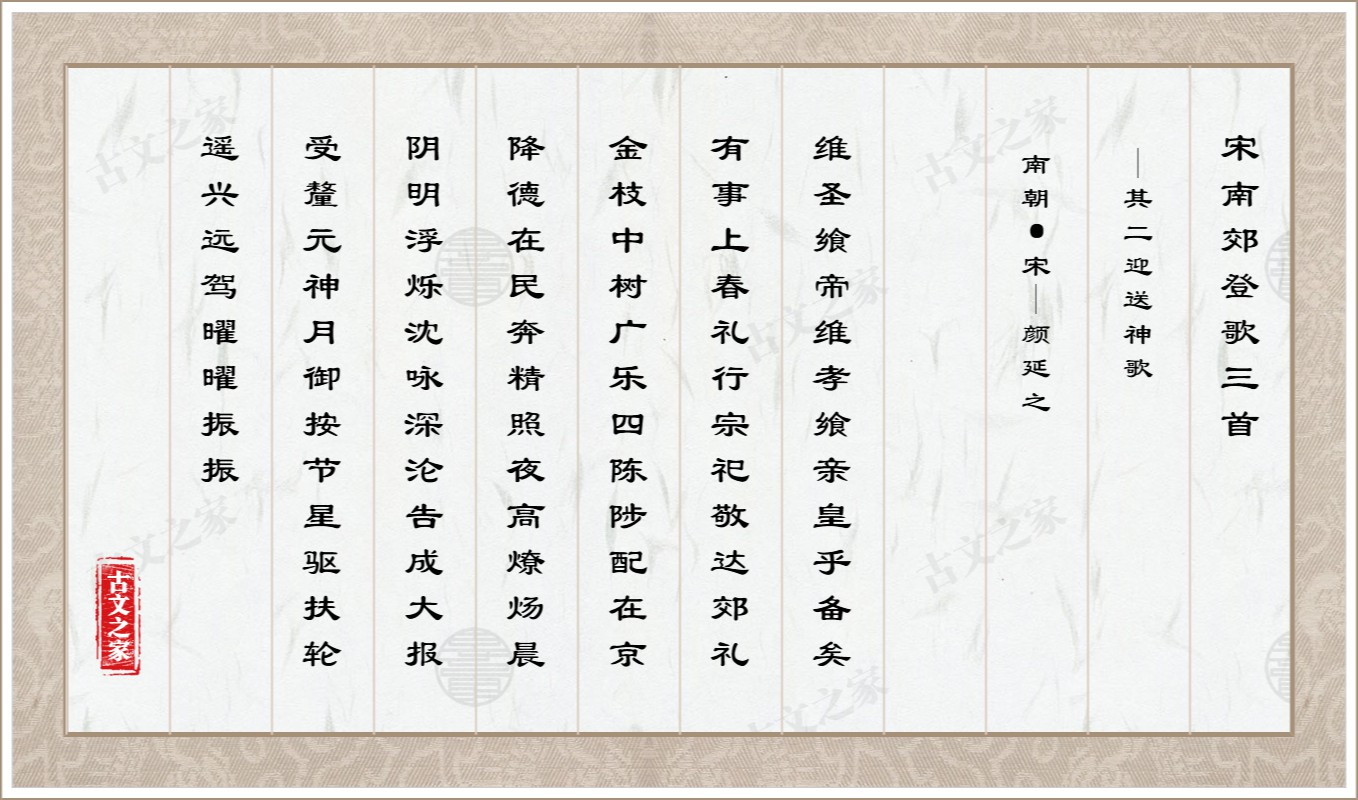 宋南郊登歌三首
—其二迎送神歌
南朝●宋—颜延之
维圣飨帝维孝飨亲皇乎备矣
有事上春礼行宗祀敬达郊礼
金枝中树广乐四陈陟配在京
降德在民奔精照夜高燎炀晨
阴明浮烁沈咏深沦告成大报
受釐元神月御按节星驱扶轮
遥兴远驾曜曜振振
古文之家